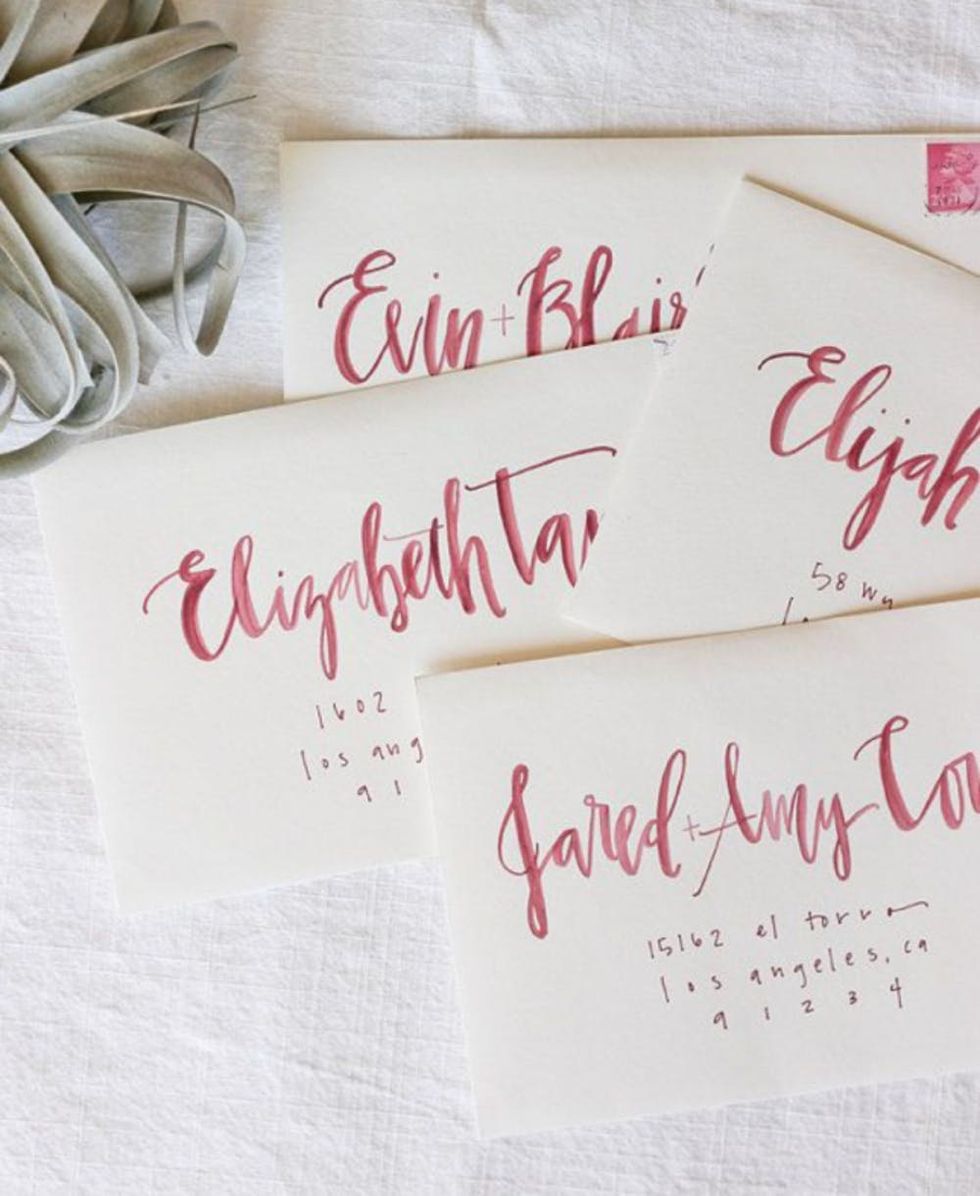 Erin + Blair
Elijah
58
Elizabeth
1602
los ang
9 1
Jared + Amy
15162 el
los angeles, ca
9 1 2 3 4